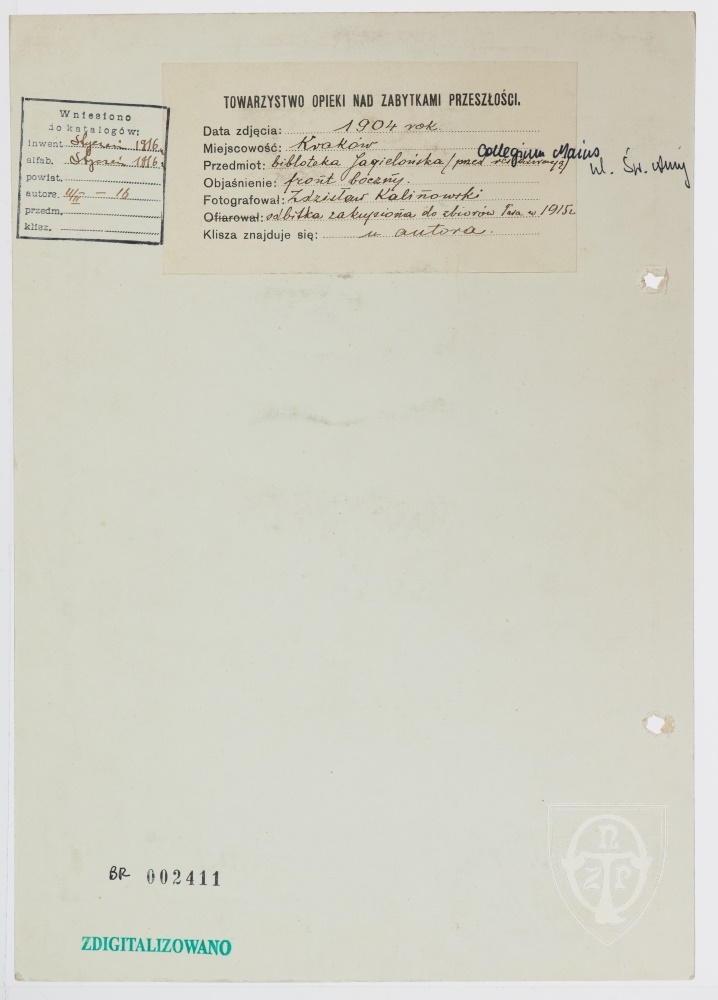 Wniesiono
do katalogów:
inwent. Styczeń 1916.
alfab. Styczeń 1916.
powiat.
autors. 11/II — 16
przedm.
klisz.
TOWARZYSTWO OPIEKI NAD ZABYTKAMI PRZESZŁOŚCI.
Data zdjęcia: 1904 rok.
Miejscowość: Kraków
Przedmiot: bibloteka Jagielońska / przed Collegium Maius, ul. Św. Anny
Objaśnienie: front boczny.
Fotografował: Zdzisław Kalinowski
Ofiarował: odbitka zakupiona do zbiorów Twa w 1915 r
Klisza znajduje się: u autora.
BR 002411
ZDIGITALIZOWANO
TNZP